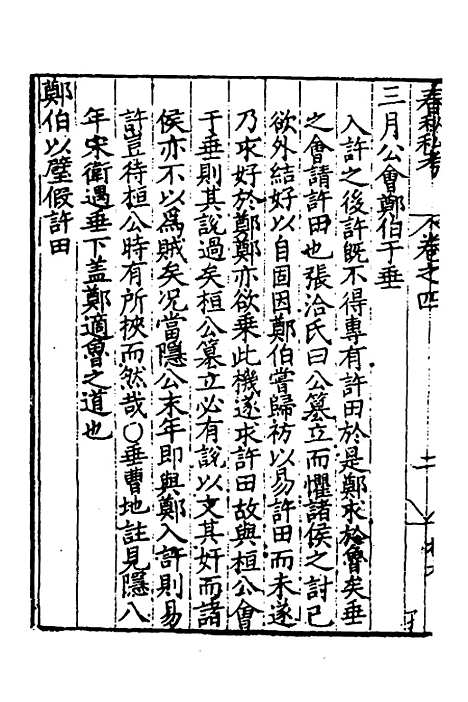 春秋私考 卷之四 二
三月公會鄭伯于垂
入許之後許既不得專有許田於是鄭求於魯矣垂
之會請許田也張洽氏曰公簒立而懼諸侯之討己
欲外結好以自固因鄭伯嘗歸祊以易許田而未遂
乃求好於鄭鄭亦欲乗此機遂求許田故與桓公會
于垂則其説過矣桓公簒立必有説以文其奸而諸
侯亦不以為賊矣况當隱公末年即與鄭入許則易
許豈待桓公時有所挾而然哉○垂曹地註見隱八
年宋衛遇垂下盖鄭適魯之道也
鄭伯以璧假許田